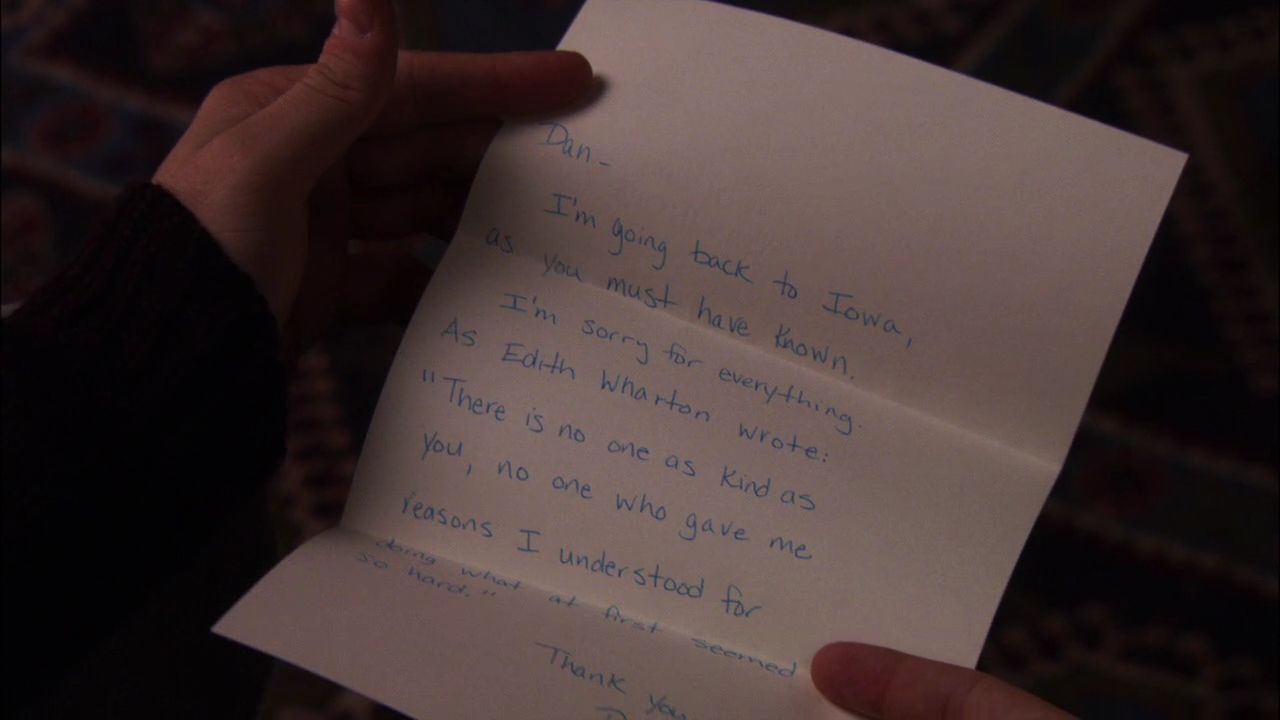 Dan-
I'm going back to Iowa,
as you must have known.
I'm sorry for everything.
As Edith Wharton wrote:
"There is no one as kind as
you, no one who gave me
reasons I understood for
doing what at first seemed
so hard."
Thank you